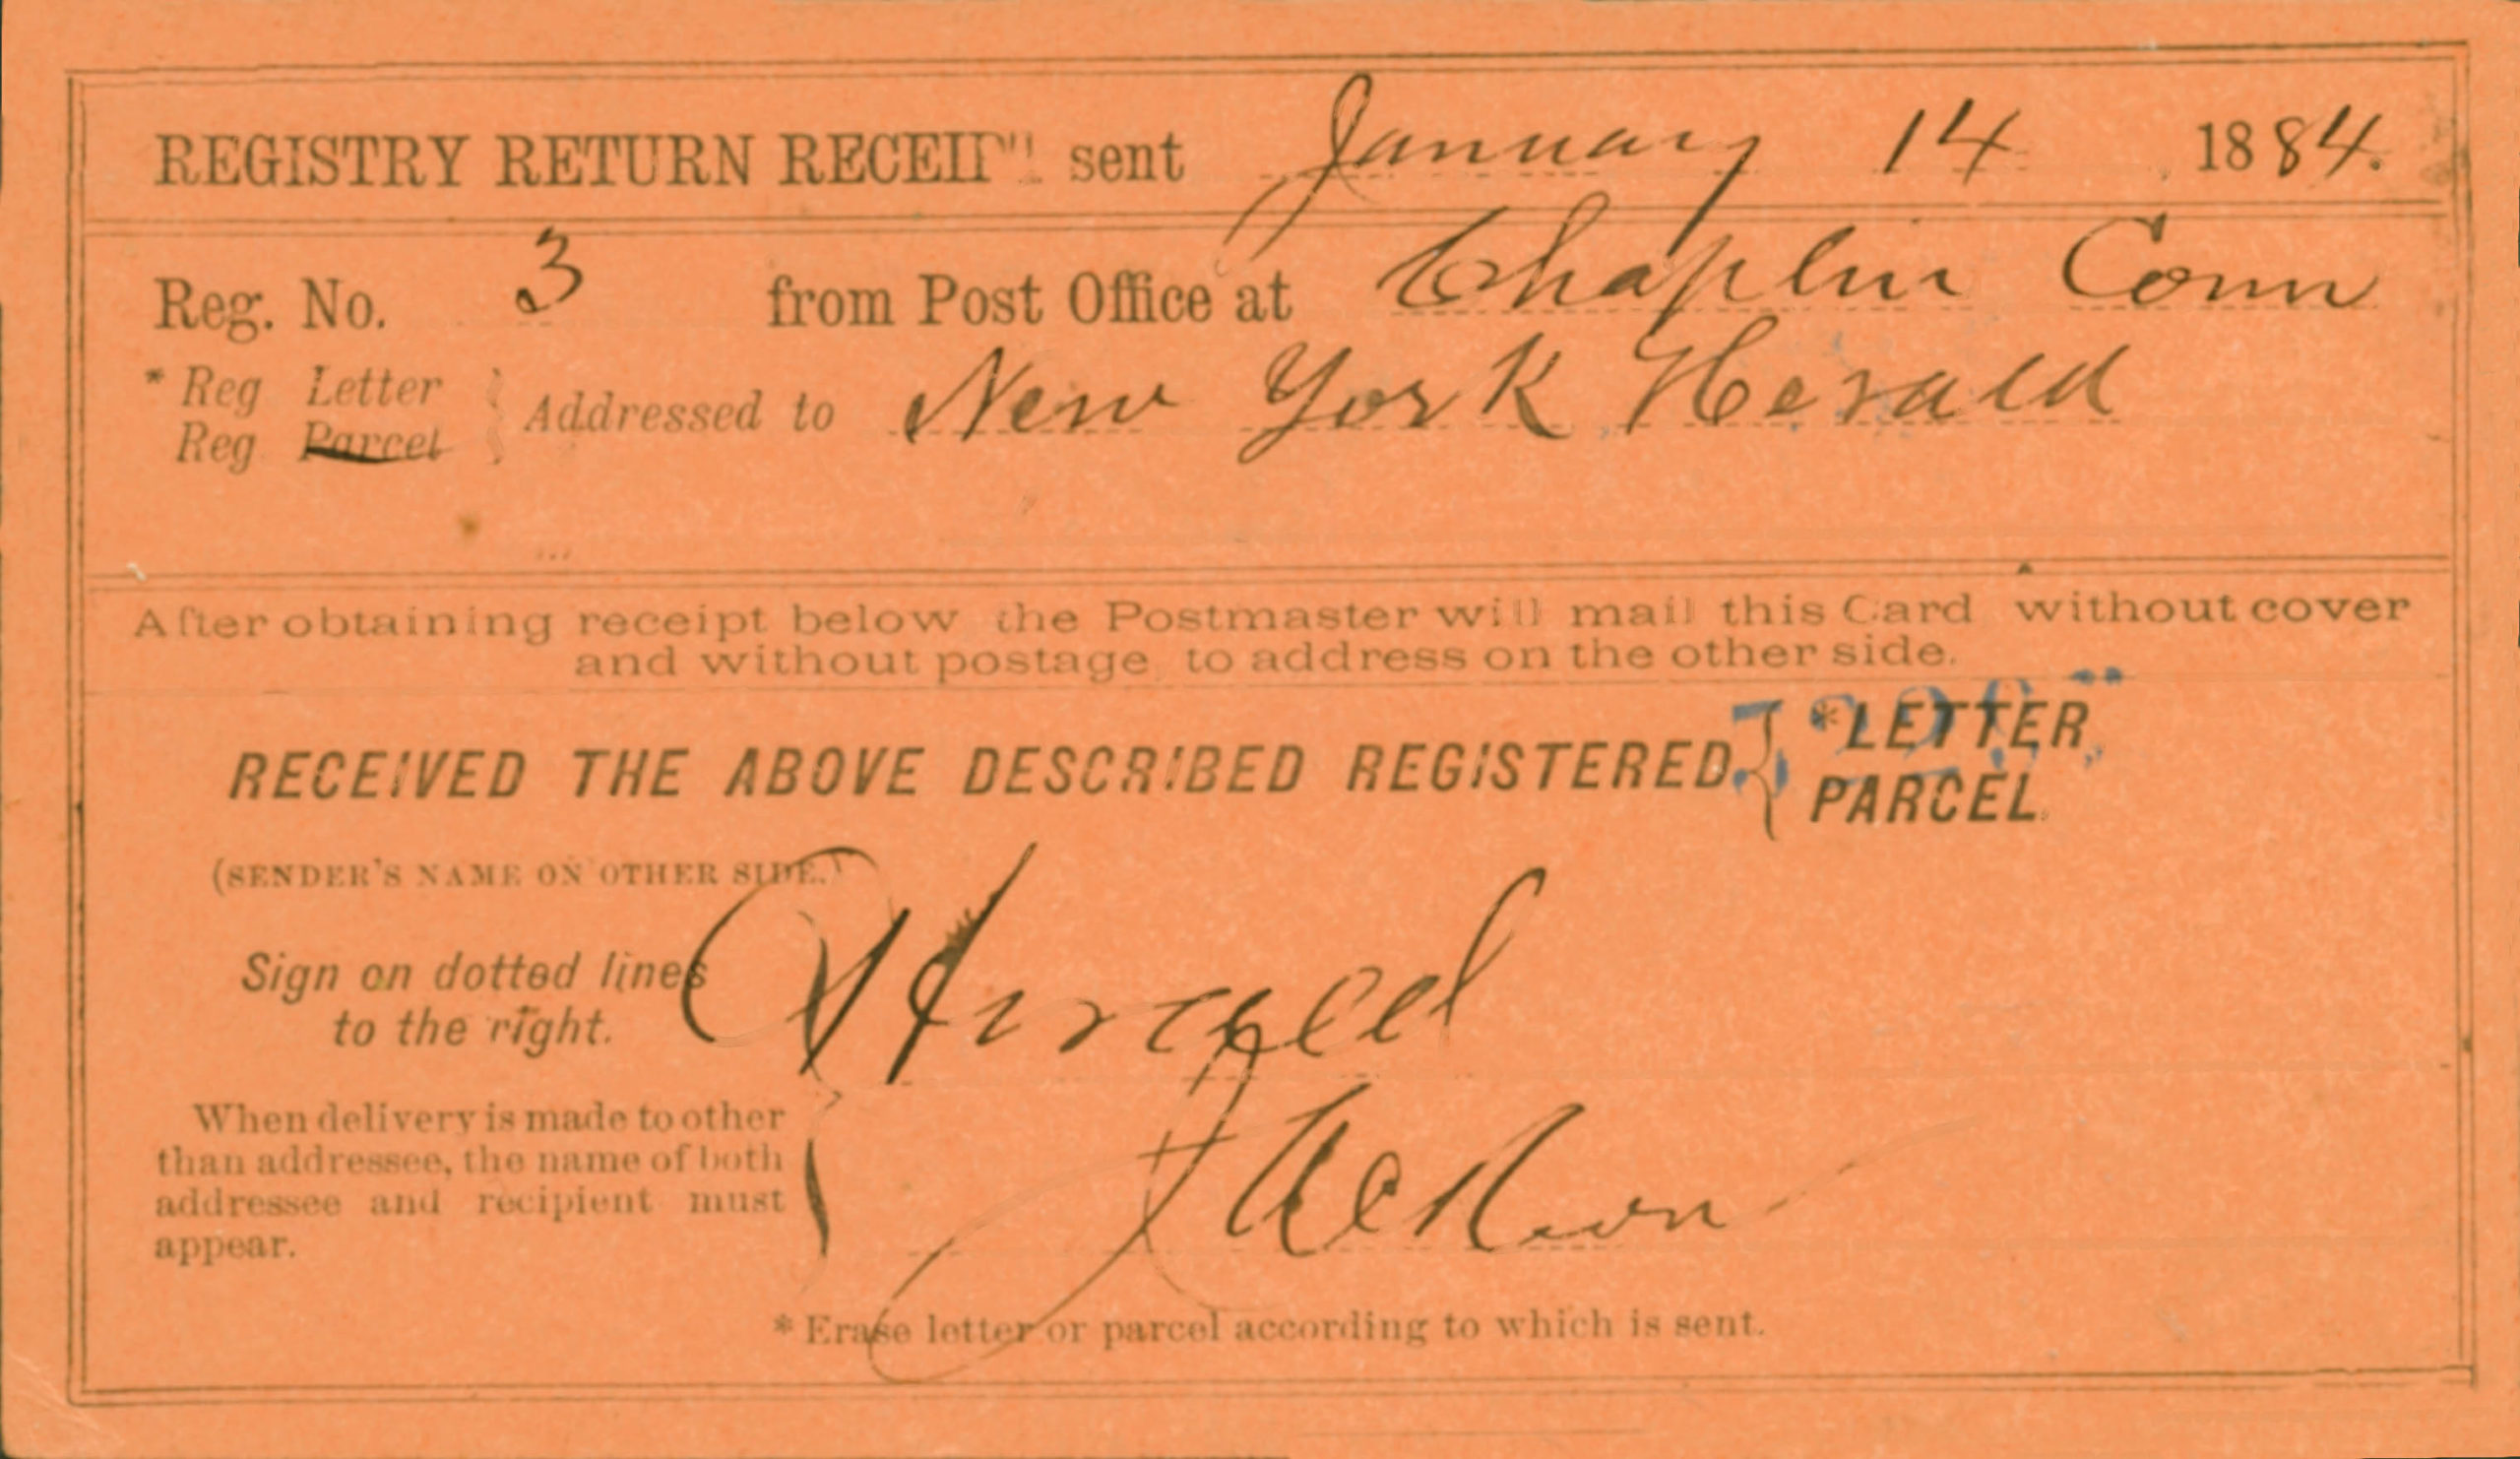 REGISTRY RETURN RECEIPT sent January 14 1884.
Reg. No. 3 from Post Office at Chaplin Conn
* Reg Letter
Reg Parcel
Addressed to New York Herald
After obtaining receipt below the Postmaster will mail this Card without cover
and without postage, to address on the other side.
RECEIVED THE ABOVE DESCRIBED REGISTERED
* LETTER
PARCEL.
(SENDER'S NAME ON OTHER SIDE.)
Sign on dotted lines
to the right.
Herald
When delivery is made to other
than addressee, the name of both
addressee and recipient must
appear.
* Erase letter or parcel according to which is sent.